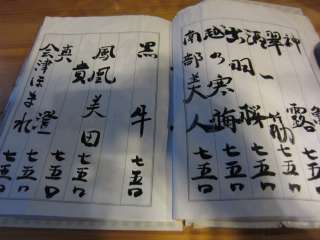 神亀
翠露 七五〇
酒一筋 七五〇
出羽桜 七五〇
越の寒梅 七五〇
南部美人 七五〇
黒牛 七五〇
鳳凰美田 七五〇
貴 七五〇
真澄 七五〇
会津ほまれ 七五〇